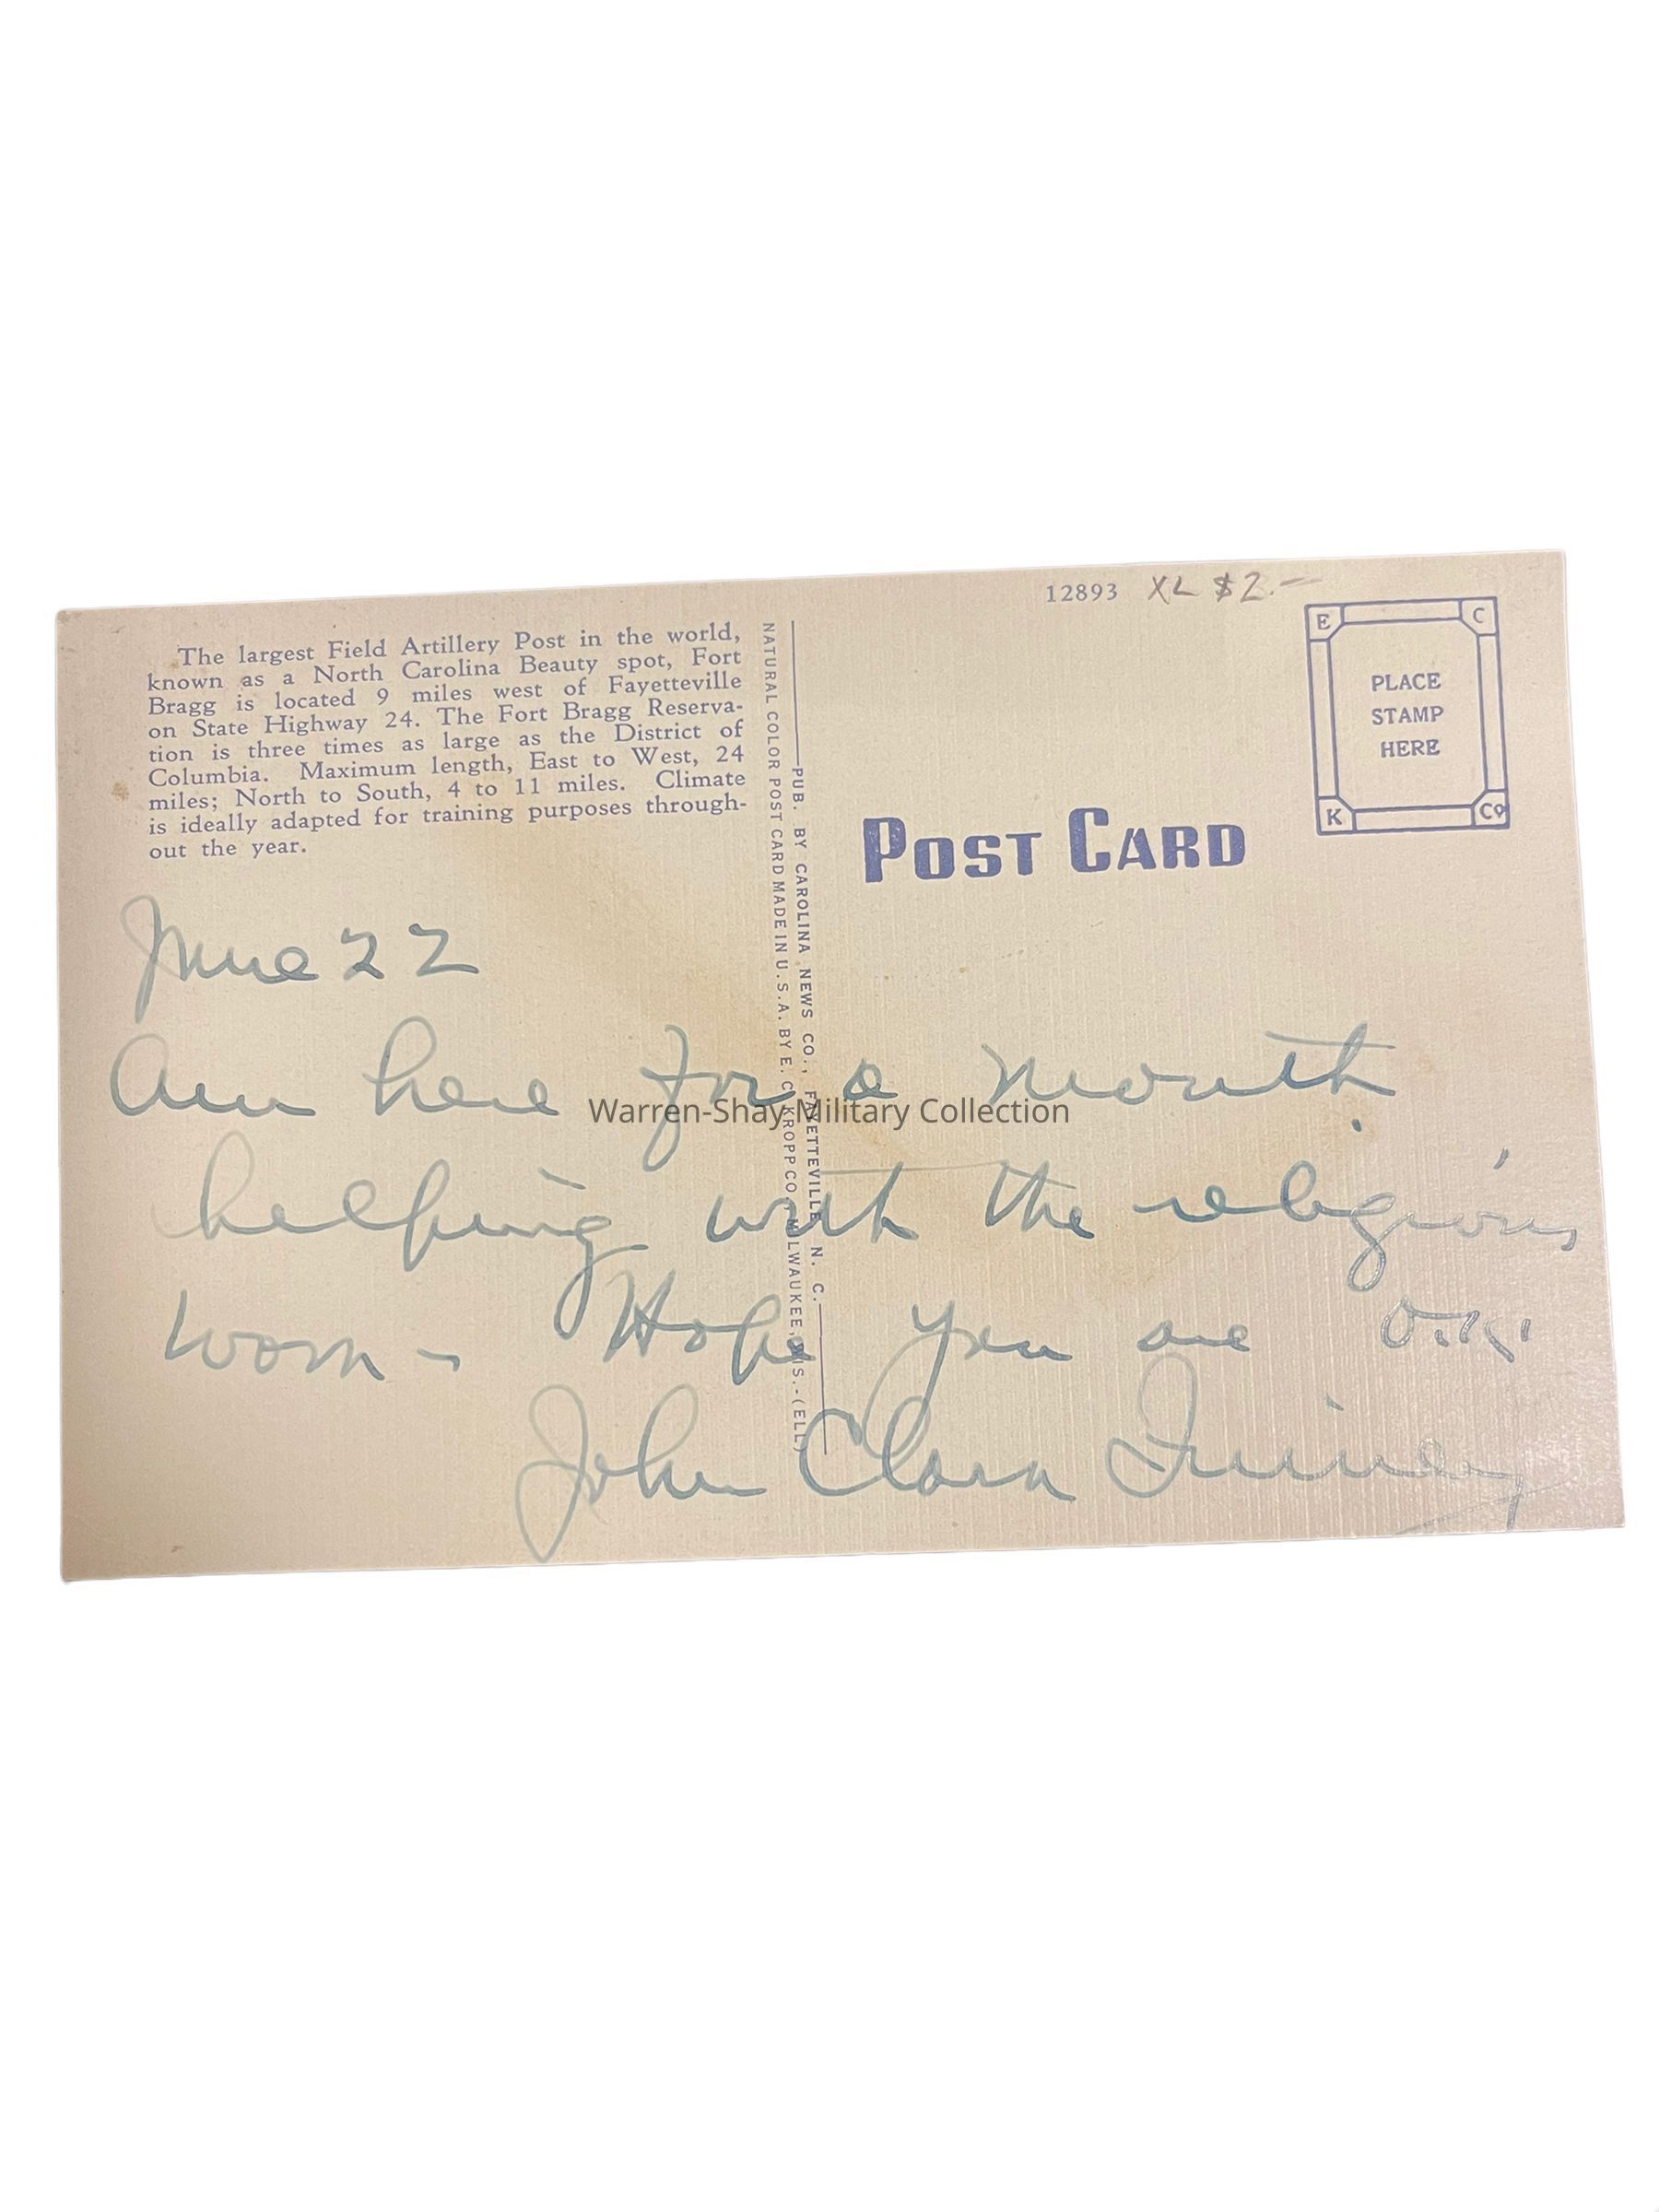 12893 XL $2.—
The largest Field Artillery Post in the world,
known as a North Carolina Beauty spot, Fort
Bragg is located 9 miles west of Fayetteville
on State Highway 24. The Fort Bragg Reserva-
tion is three times as large as the District of
Columbia. Maximum length, East to West, 24
miles; North to South, 4 to 11 miles. Climate
is ideally adapted for training purposes through-
out the year.
NATURAL COLOR POST CARD MADE IN U.S.A. BY E. C. KROPP CO., MILWAUKEE, WIS.-(ELL)
PUB. BY CAROLINA NEWS CO., FAYETTEVILLE, N. C.
E C
PLACE
STAMP
HERE
K Co
POST CARD
June 22
Am here for a month
helping with the religious
work - Hope you are O.K.
John Clark
Warren-Shay Military Collection